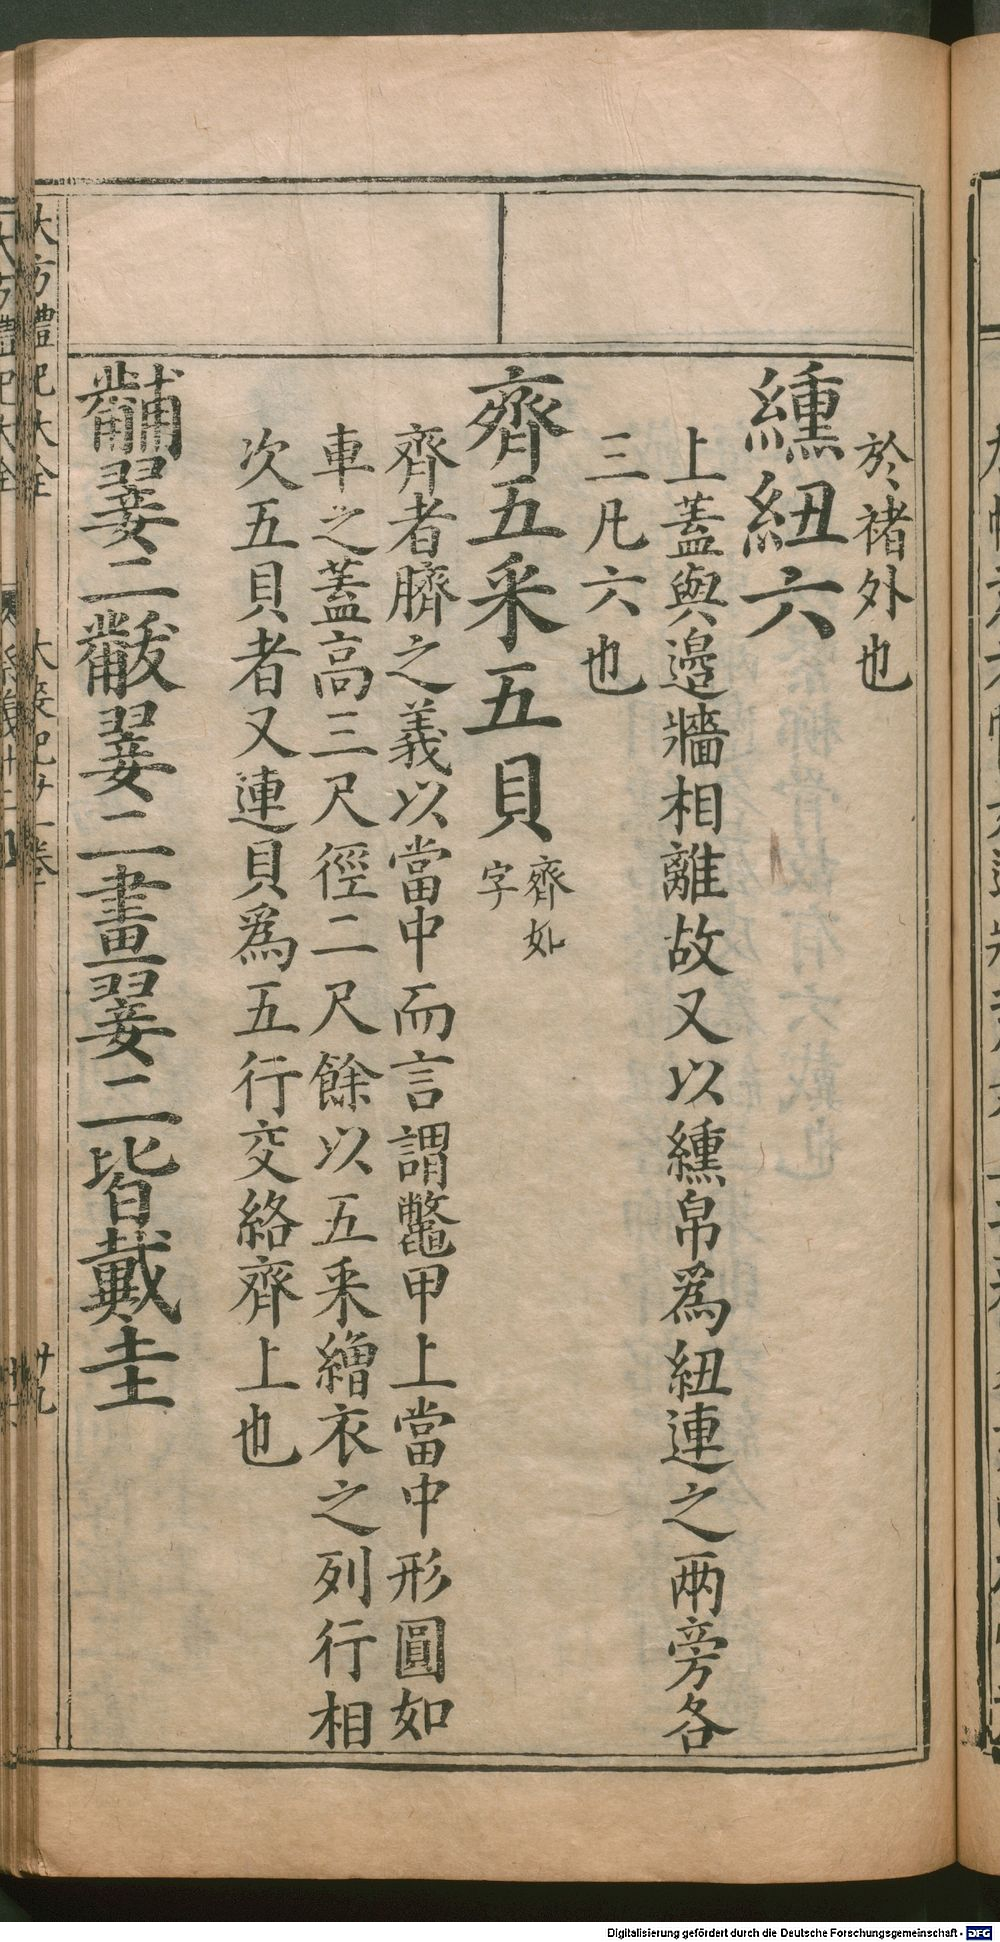 於褚外也
纁紐六
上蓋與邉牆相離故又以纁帛爲紐連之兩旁各
三凡六也
齊五采五貝 齊如字
齊者臍之義以當中而言謂鼈甲上當中形圓如
車之蓋高三尺徑二尺餘以五采繒衣之列行相
次五貝者又連貝爲五行交絡齊上也
黼翣二黻翣二畫翣二皆戴圭
大方禮記大全
大喪記廿一卷
廿九
Digitalisierung gefördert durch die Deutsche Forschungsgemeinschaft - DFG